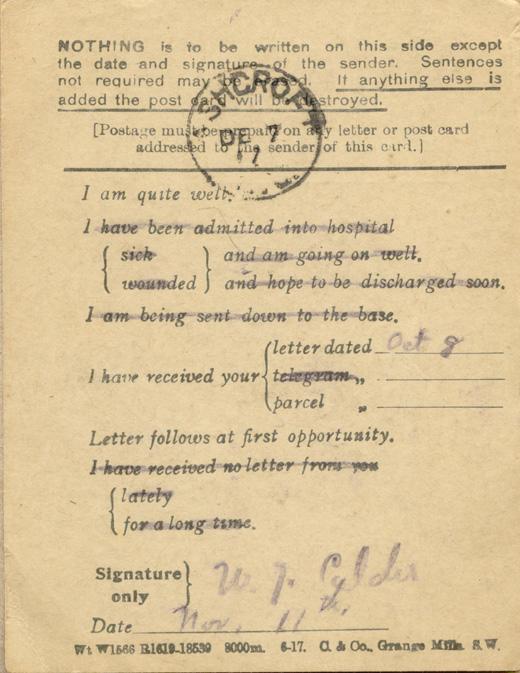 NOTHING is to be written on this side except
the date and signature of the sender. Sentences
not required may be erased. If anything else is
added the post card will be destroyed.
[Postage must be prepaid on any letter or post card
addressed to the sender of this card.]
ASHCROFT
DE 7
17
I am quite well.
I have been admitted into hospital
{ sick } and am going on well.
{ wounded } and hope to be discharged soon.
I am being sent down to the base.
I have received your { letter dated Oct 8
telegram „
parcel „
Letter follows at first opportunity.
I have received no letter from you
{ lately
for a long time.
Signature only } W. J.
Date Nov. 11th.
Wt W1566 R1619-18539 8000m. 6-17. C. & Co., Grange Mills. S.W.